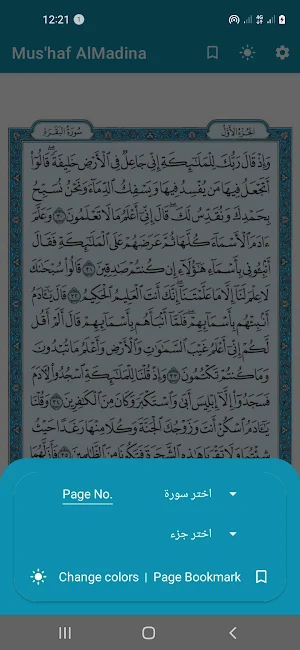 12:21
Mus'haf AlMadina
سُورَةُ البَقَرَةِ الجُزءُ الأَوَّلُ
وَإِذْ قَالَ رَبُّكَ لِلْمَلَٰٓئِكَةِ إِنِّي جَاعِلٌ فِي ٱلْأَرْضِ خَلِيفَةً ۖ قَالُوٓا۟
أَتَجْعَلُ فِيهَا مَن يُفْسِدُ فِيهَا وَيَسْفِكُ ٱلدِّمَآءَ وَنَحْنُ نُسَبِّحُ
بِحَمْدِكَ وَنُقَدِّسُ لَكَ ۖ قَالَ إِنِّيٓ أَعْلَمُ مَا لَا تَعْلَمُونَ ٣٠ وَعَلَّمَ
ءَادَمَ ٱلْأَسْمَآءَ كُلَّهَا ثُمَّ عَرَضَهُمْ عَلَى ٱلْمَلَٰٓئِكَةِ فَقَالَ
أَنۢبِـُٔونِي بِأَسْمَآءِ هَٰٓؤُلَآءِ إِن كُنتُمْ صَٰدِقِينَ ٣١ قَالُوا۟ سُبْحَٰنَكَ
لَا عِلْمَ لَنَآ إِلَّا مَا عَلَّمْتَنَآ ۖ إِنَّكَ أَنتَ ٱلْعَلِيمُ ٱلْحَكِيمُ ٣٢ قَالَ يَٰٓـَٔادَمُ
أَنۢبِئْهُم بِأَسْمَآئِهِمْ ۖ فَلَمَّآ أَنۢبَأَهُم بِأَسْمَآئِهِمْ قَالَ أَلَمْ أَقُل
لَّكُمْ إِنِّيٓ أَعْلَمُ غَيْبَ ٱلسَّمَٰوَٰتِ وَٱلْأَرْضِ وَأَعْلَمُ مَا تُبْدُونَ
وَمَا كُنتُمْ تَكْتُمُونَ ٣٣ وَإِذْ قُلْنَا لِلْمَلَٰٓئِكَةِ ٱسْجُدُوا۟ لِـَٔادَمَ
فَسَجَدُوٓا۟ إِلَّآ إِبْلِيسَ أَبَىٰ وَٱسْتَكْبَرَ وَكَانَ مِنَ ٱلْكَٰفِرِينَ ٣٤ وَقُلْنَا
يَٰٓـَٔادَمُ ٱسْكُنْ أَنتَ وَزَوْجُكَ ٱلْجَنَّةَ وَكُلَا مِنْهَا رَغَدًا حَيْثُ
شِئْتُمَا وَلَا تَقْرَبَا هَٰذِهِ ٱلشَّجَرَةَ فَتَكُونَا مِنَ ٱلظَّٰلِمِينَ ٣٥ فَأَزَلَّهُمَا
Page No. اختر سورة
اختر جزء
Change colors | Page Bookmark